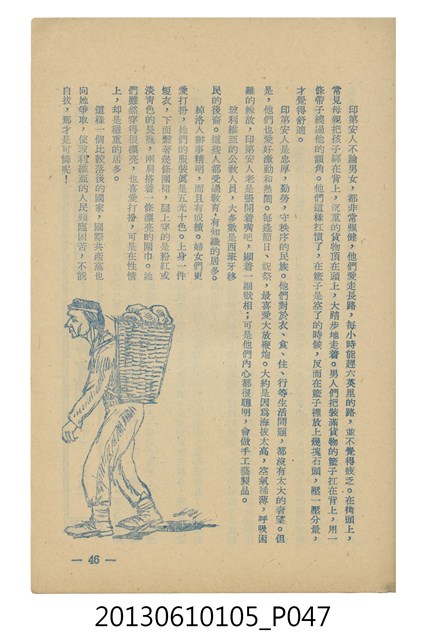 印第安人不論男女，都非常強健，他們愛走長路，每小時能趕六英里的路，並不覺得疲乏。在街頭上，
常見母親把孩子綁在背上，沉重的貨物頂在頭上，大踏步地走着。男人們把裝滿貨物的籃子扛在背上，用一
條帶子繞過他的額角。他們這樣扛慣了，在籃子是空了的時候，反而在籃子裡放上幾塊石頭，壓一壓分量，
才覺得舒適。
印第安人是忠厚，勤勞，守秩序的民族。他們對於衣、食、住、行等生活問題，都沒有太大的奢望。但
是，他們也愛好激動和熱鬧。每逢節日、祝祭，最喜愛大放鞭炮。大約是因爲海拔太高，空氣稀薄，呼吸困
難的緣故，印第安人老是張開着嘴吧，顯着一副獃相；可是他們內心都很聰明，會做手工藝製品。
玻利維亞的公教人員，大多數是西班牙移
民的後裔。這些人都受過教育，有知識的居多。
綽洛人辦事精明，而且有成績。婦女們更
愛打扮，他們的服裝真是五光十色。上身一件
短衣，下面繫着幾條圍裙，腿上穿的是粉紅或
淡青色的長襪，兩肩搭着一條漂亮的圍巾。她
們雖然穿得很漂亮，也喜愛打扮，可是在性情
上，却是穩重的居多。
這樣一個比較落後的國家，國際共產黨也
向她爭取，使玻利維亞的人民頻臨困苦，不能
自拔，那才是可憐呢！
— 46 —
20130610105_P047